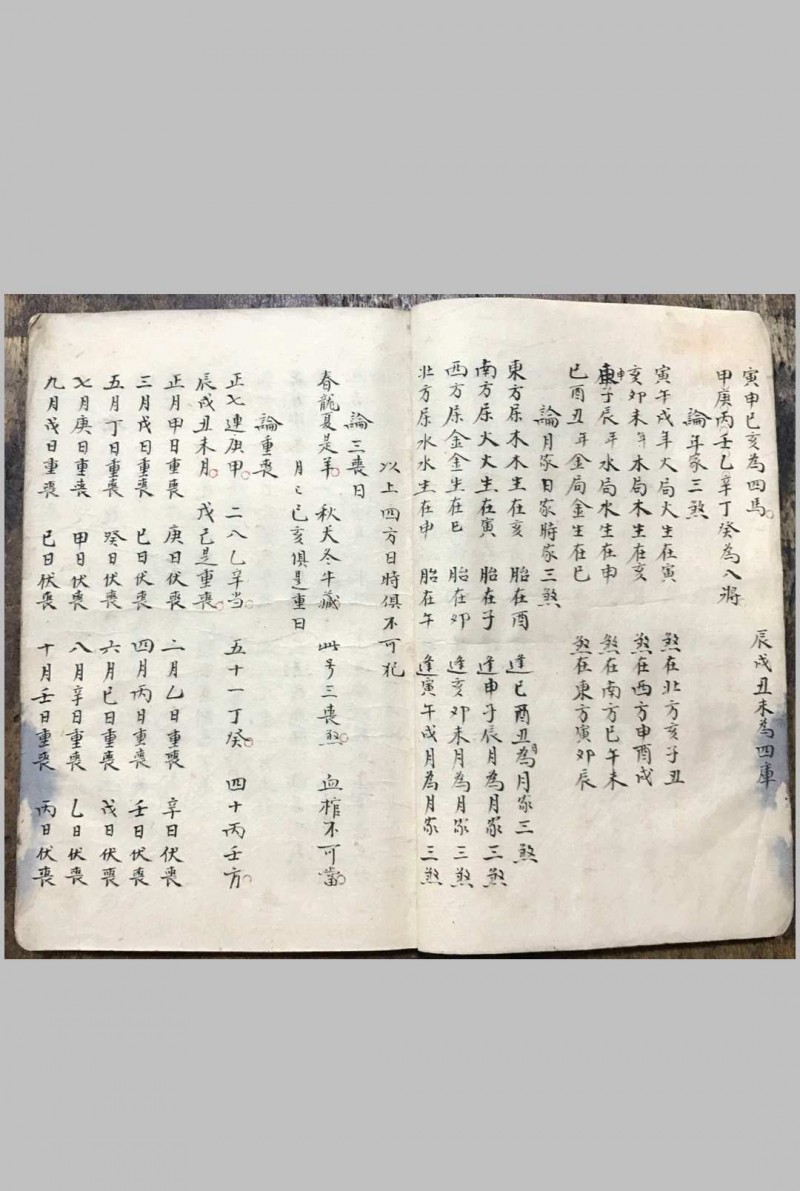 寅申巳亥為四馬 辰戌丑未為四庫
甲庚丙壬乙辛丁癸為八將
論年家三煞
寅午戌年火局火生在寅 煞在北方亥子丑
亥卯未年木局木生在亥 煞在西方申酉戌
申子辰年水局水生在申 煞在南方巳午未
巳酉丑年金局金生在巳 煞在東方寅卯辰
論月家日家時家三煞
東方屬木木生在亥 胎在酉 逢巳酉丑月為月家三煞
南方屬火火生在寅 胎在子 逢申子辰月為月家三煞
西方屬金金生在巳 胎在卯 逢亥卯未月為月家三煞
北方屬水水生在申 胎在午 逢寅午戌月為月家三煞
以上四方日時俱不可犯
論三喪日
春龍夏是羊 秋犬冬牛藏 此号三喪煞 血棺不可當
月〻巳亥俱是重日
論重喪
正七連庚甲 二八乙辛当 五十一丁癸 四十丙壬方
辰戌丑未月 戊己是重喪
正月甲日重喪 庚日伏喪 二月乙日重喪 辛日伏喪
三月戊日重喪 巳日伏喪 四月丙日重喪 壬日伏喪
五月丁日重喪 癸日伏喪 六月巳日重喪 戊日伏喪
七月庚日重喪 甲日伏喪 八月辛日重喪 乙日伏喪
九月戊日重喪 巳日伏喪 十月壬日重喪 丙日伏喪